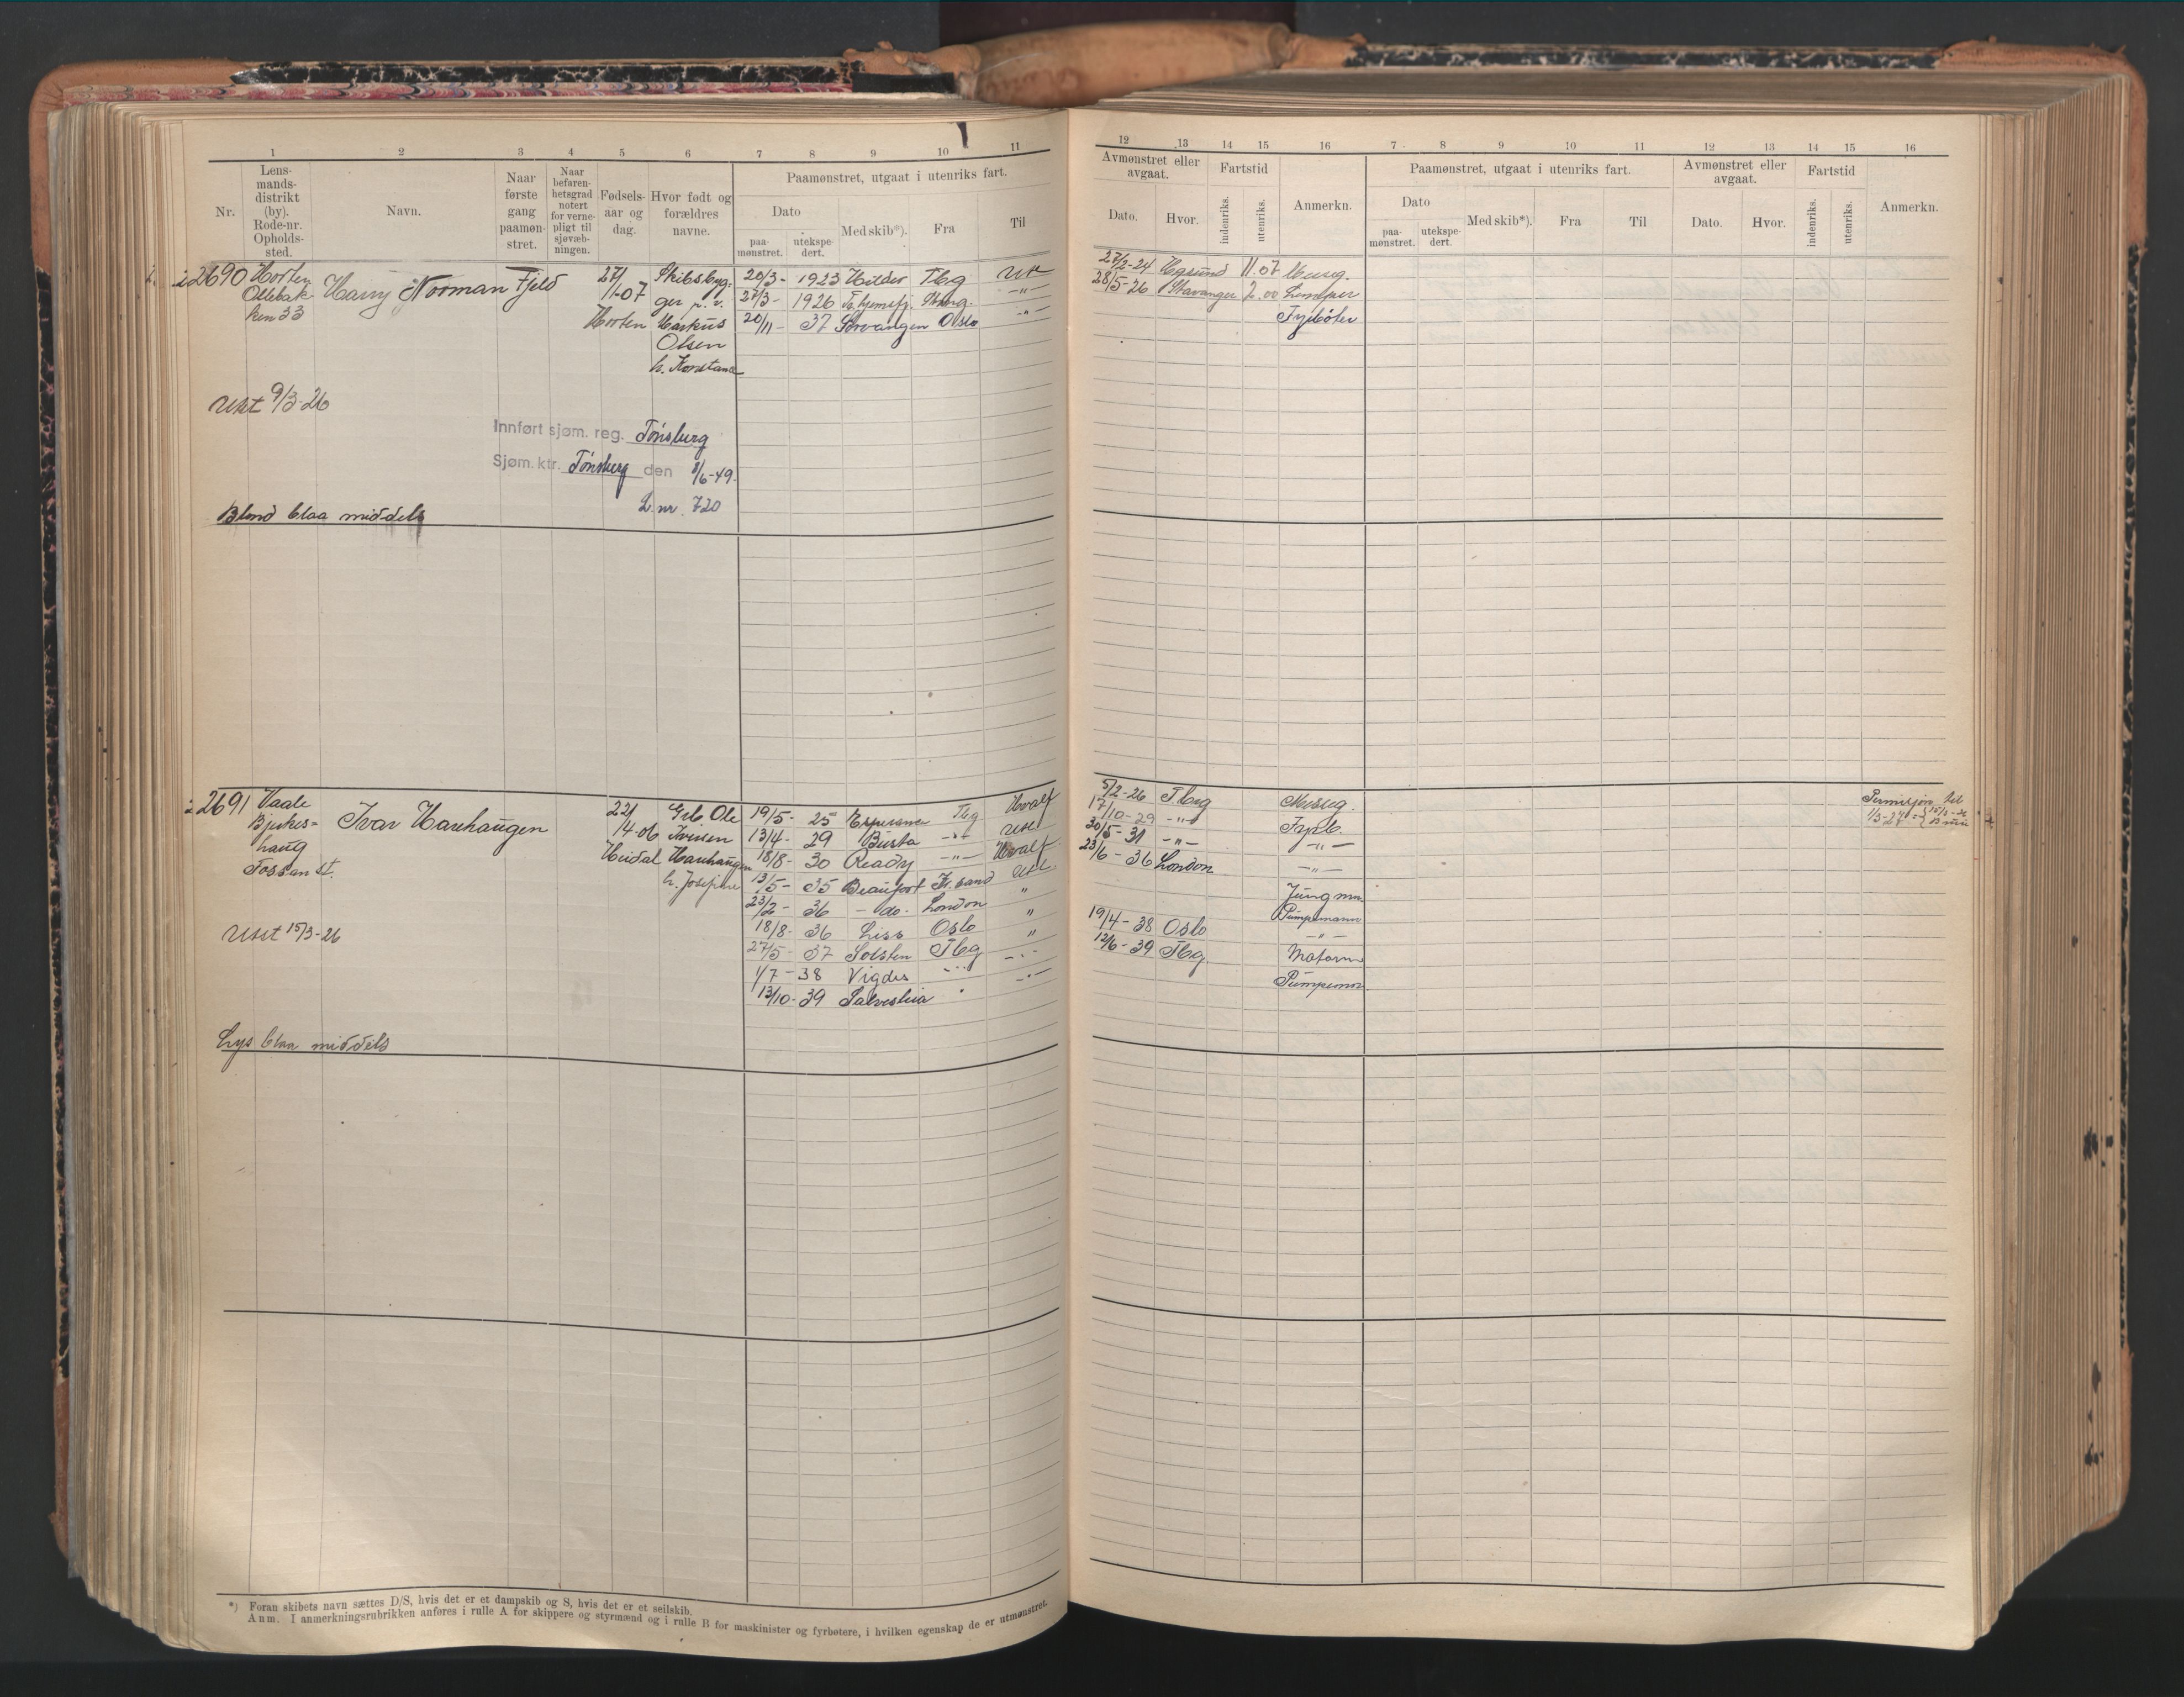 1 2 3 4 5 6 7 8 9 10 11
Nr.
Lens-
mands-
distrikt
(by).
Rode-nr.
Opholds-
sted.
Navn.
Naar
første
gang
paamøn-
stret.
Naar
befaren-
hetsgrad
notert
for verne-
pligt til
sjøvæb-
ningen.
Fødsels-
aar og
dag.
Hvor født og
forældres
navne.
Paamønstret, utgaat i utenriks fart.
Dato
paa-
mønstret.
utekspe-
dert.
Med skib*).
Fra
Til
2690 Horten Harry Norman Fjeld 27/ Skibsbyg- 20/3- 1923 Hilder Tbg Utl
Ollebak- 11-07 ger p. v. 27/3- 1926 -"-
ken 33 Horten Markus 20/11- 37 Oslo -"-
Olsen
h. Konstance
Utst 9/3-26
Innført sjøm. reg. Tønsberg
Sjøm. ktr. Tønsberg den 8/6-49.
L. nr. 720
Blond blaa middels
2691 Vaale Ivar Harehaugen 22/ Ole 19/5- 25 Esperance Tbg Hvalf
Bjerkes- 4-06 Iversen 13/4- 29 Busta -"- Utl
haug Heidal Harehaugen 18/8- 30 Ready -"- Hvalf
h. Josefine 13/5- 35 Beaufort Kr. sand Utl
23/2- 36 - do - London "
Utst 15/3-26 18/8- 36 Liss Oslo "
27/5- 37 Solsten Tbg -"-
1/7-38 Vigdis -"- -"-
13/10-39 "
Lys blaa middels
*) Foran skibets navn sættes D/S, hvis det er et dampskib og S, hvis det er et seilskib.
Anm. I anmerkningsrubrikken anføres i rulle A for skippere og styrmænd og i rulle B for maskinister og fyrbøtere, i hvilken egenskap de er utmønstret.
12 13 14 15 16 7 8 9 10 11 12 13 14 15 16
Avmønstret eller
avgaat.
Dato.
Hvor.
Fartstid
indenriks.
utenriks.
Anmerkn.
Paamønstret, utgaat i utenriks fart.
Dato
paa-
mønstret.
utekspe-
dert.
Med skib*).
Fra
Til
Avmønstret eller
avgaat.
Dato.
Hvor.
Fartstid
indenriks.
utenriks.
Anmerkn.
27/2-24 11.07
28/5-26 Stavanger 2.00 Lemper
Fyrbøter
5/2-26 Tbg
17/10-29 -"- Fyrb.
30/5-31 -"- -"-
23/6-36 London -"-
Jungm
Pumpemann
19/4-38 Oslo -"-
12/6-39 Tbg.
Pumpeman